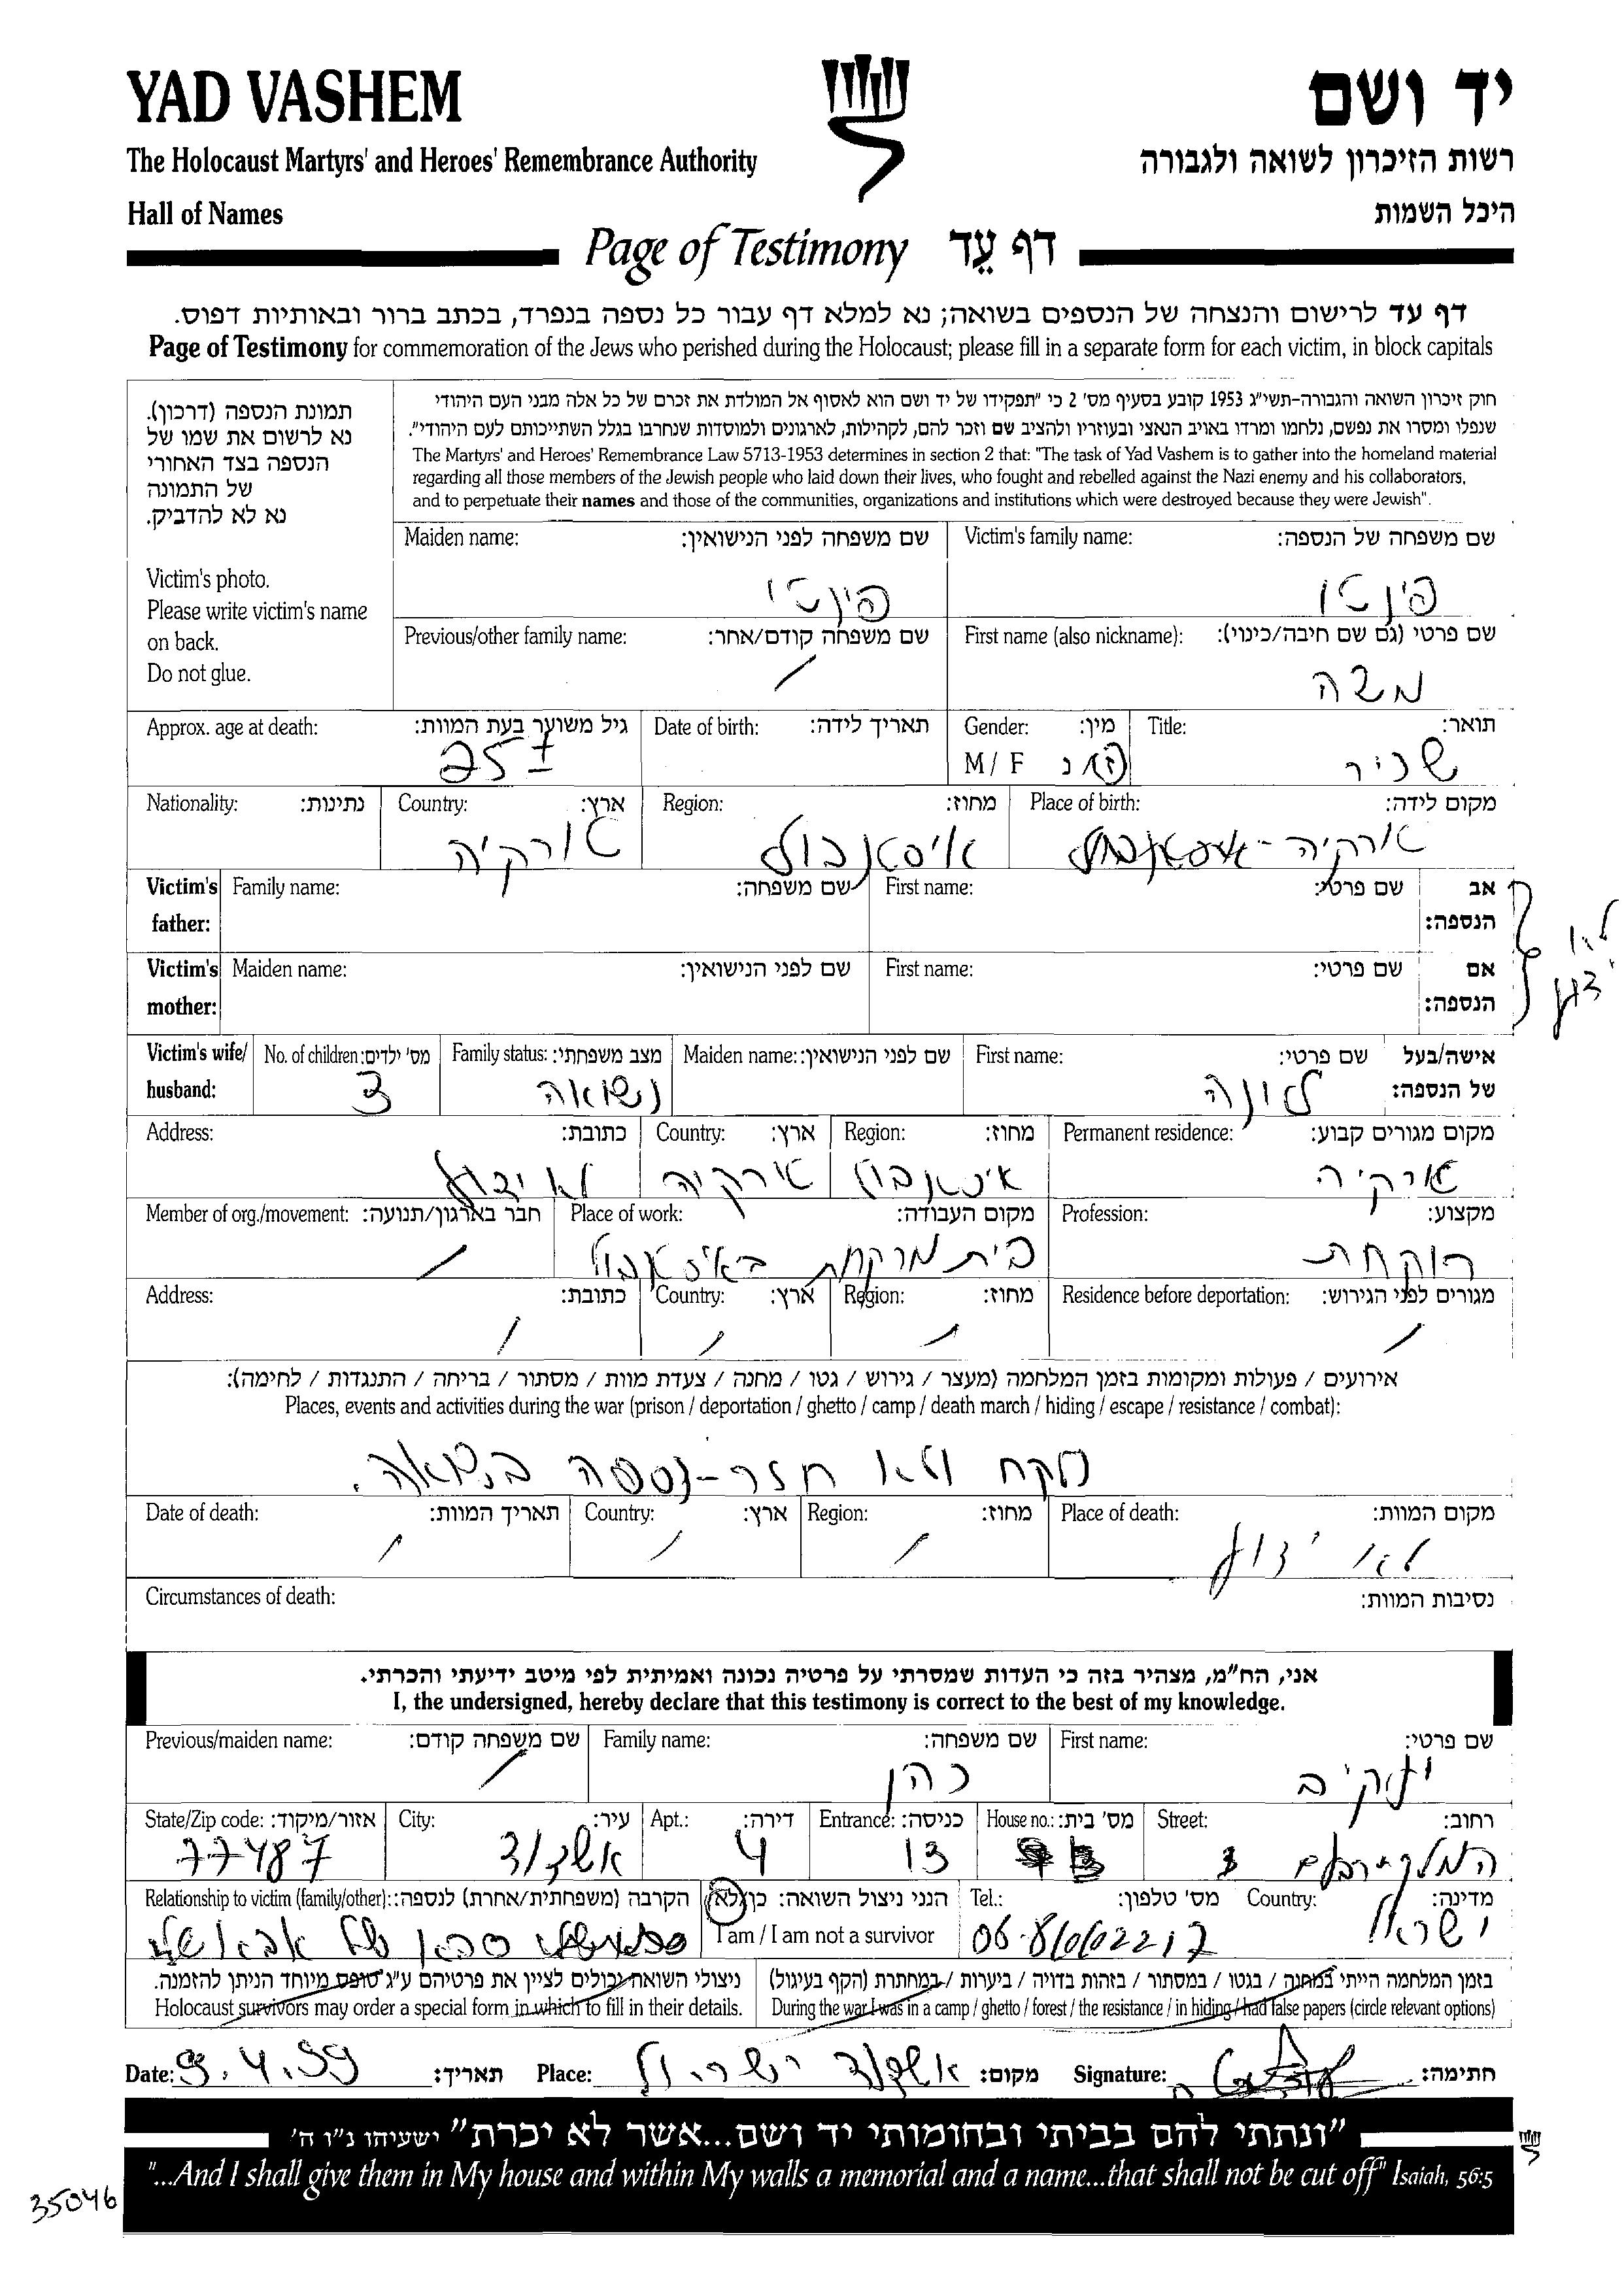 YAD VASHEM
יד ושם
The Holocaust Martyrs' and Heroes' Remembrance Authority
רשות הזיכרון לשואה ולגבורה
Hall of Names
היכל השמות
Page of Testimony דף עֵד
דף עד לרישום והנצחה של הנספים בשואה; נא למלא דף עבור כל נספה בנפרד, בכתב ברור ובאותיות דפוס.
Page of Testimony for commemoration of the Jews who perished during the Holocaust; please fill in a separate form for each victim, in block capitals
תמונת הנספה (דרכון).
נא לרשום את שמו של
הנספה בצד האחורי
של התמונה
נא לא להדביק.
Victim's photo.
Please write victim's name
on back.
Do not glue.
חוק זיכרון השואה והגבורה-תשי"ג 1953 קובע בסעיף מס' 2 כי "תפקידו של יד ושם הוא לאסוף אל המולדת את זכרם של כל אלה מבני העם היהודי
שנפלו ומסרו את נפשם, נלחמו ומרדו באויב הנאצי ובעוזריו ולהציב שם וזכר להם, לקהילות, לארגונים ולמוסדות שנחרבו בגלל השתייכותם לעם היהודי".
The Martyrs' and Heroes' Remembrance Law 5713-1953 determines in section 2 that: "The task of Yad Vashem is to gather into the homeland material
regarding all those members of the Jewish people who laid down their lives, who fought and rebelled against the Nazi enemy and his collaborators,
and to perpetuate their names and those of the communities, organizations and institutions which were destroyed because they were Jewish".
Maiden name: שם משפחה לפני הנישואין: Victim's family name: שם משפחה של הנספה:
פינטו פינטו
Previous/other family name: שם משפחה קודם/אחר: First name (also nickname): שם פרטי (גם שם חיבה/כינוי):
/ משה
Approx. age at death: גיל משוער בעת המוות: Date of birth: תאריך לידה: Gender: מין: Title: תואר:
25 ± M / F ז/נ שכיר
Nationality: נתינות: Country: ארץ: Region: מחוז: Place of birth: מקום לידה:
טורקיה איסטנבול טורקיה - איסטנבול
Victim's father: Family name: שם משפחה: First name: שם פרטי: אב הנספה:
Victim's mother: Maiden name: שם לפני הנישואין: First name: שם פרטי: אם הנספה:
לא ידוע
Victim's wife/ husband: No. of children: מס' ילדים: Family status: מצב משפחתי: Maiden name: שם לפני הנישואין: First name: שם פרטי: אישה/בעל של הנספה:
3 נשואה לונה
Address: כתובת: Country: ארץ: Region: מחוז: Permanent residence: מקום מגורים קבוע:
לא ידוע טורקיה איסטנבול טורקיה
Member of org./movement: חבר בארגון/תנועה: Place of work: מקום העבודה: Profession: מקצוע:
/ בית מרקחת באיסטנבול רוקחת
Address: כתובת: Country: ארץ: Region: מחוז: Residence before deportation: מגורים לפני הגירוש:
/ / / /
אירועים / פעולות ומקומות בזמן המלחמה (מעצר / גירוש / גטו / מחנה / צעדת מוות / מסתור / בריחה / התנגדות / לחימה):
Places, events and activities during the war (prison / deportation / ghetto / camp / death march / hiding / escape / resistance / combat):
נלקח ולא חזר - נספה בשואה.
Date of death: תאריך המוות: Country: ארץ: Region: מחוז: Place of death: מקום המוות:
/ / / לא ידוע
Circumstances of death: נסיבות המוות:
אני, הח"מ, מצהיר בזה כי העדות שמסרתי על פרטיה נכונה ואמיתית לפי מיטב ידיעתי והכרתי.
I, the undersigned, hereby declare that this testimony is correct to the best of my knowledge.
Previous/maiden name: שם משפחה קודם: Family name: שם משפחה: First name: שם פרטי:
/ כהן יעקב
State/Zip code: אזור/מיקוד: City: עיר: Apt.: דירה: Entrance: כניסה: House no.: מס' בית: Street: רחוב:
77487 אשדוד 4 13 3
Relationship to victim (family/other): הקרבה (משפחתית/אחרת) לנספה: הנני ניצול השואה: כן/לא Tel.: מס' טלפון: Country: מדינה:
I am / I am not a survivor ישראל
ניצולי השואה יכולים לציין את פרטיהם ע"ג טופס מיוחד הניתן להזמנה.
Holocaust survivors may order a special form in which to fill in their details.
בזמן המלחמה הייתי במחנה / בגטו / במסתור / בזהות בדויה / ביערות / במחתרת (הקף בעיגול)
During the war I was in a camp / ghetto / forest / the resistance / in hiding / had false papers (circle relevant options)
Date: 9.4.99 תאריך: Place: אשדוד ישראל מקום: Signature: חתימה:
"ונתתי להם בביתי ובחומותי יד ושם...אשר לא יכרת" ישעיהו נ"ו ה'
"...And I shall give them in My house and within My walls a memorial and a name...that shall not be cut off" Isaiah, 56:5
35046